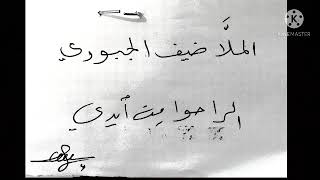 الملَّا ضيف الجبوري
الراحوا من أيدي
KINEMASTER